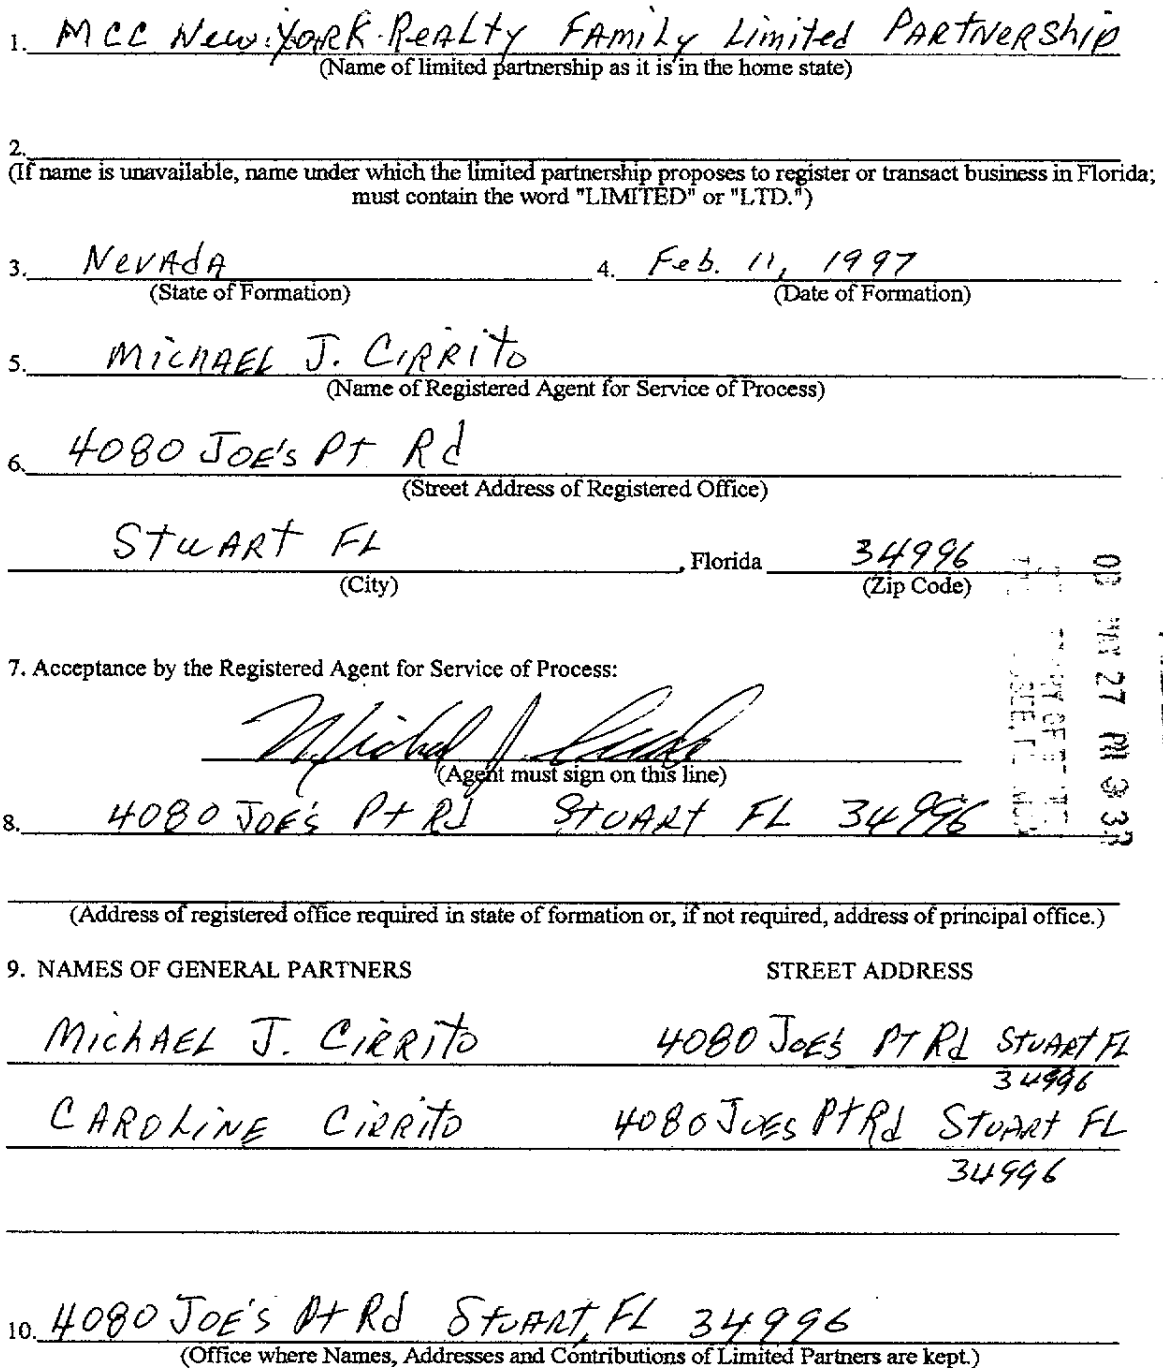 1. MCC New York Realty Family Limited Partnership
(Name of limited partnership as it is in the home state)
2.
(If name is unavailable, name under which the limited partnership proposes to register or transact business in Florida;
must contain the word "LIMITED" or "LTD.")
3. Nevada 4. Feb. 11, 1997
(State of Formation) (Date of Formation)
5. Michael J. Cirrito
(Name of Registered Agent for Service of Process)
6. 4080 Joe's Pt Rd
(Street Address of Registered Office)
Stuart FL , Florida 34996
(City) (Zip Code)
7. Acceptance by the Registered Agent for Service of Process:
(Agent must sign on this line)
8. 4080 Joe's Pt Rd Stuart FL 34996
(Address of registered office required in state of formation or, if not required, address of principal office.)
9. NAMES OF GENERAL PARTNERS STREET ADDRESS
Michael J. Cirrito 4080 Joe's Pt Rd Stuart FL
34996
Caroline Cirrito 4080 Joes Pt Rd Stuart FL
34996
10. 4080 Joe's Pt Rd Stuart, FL 34996
(Office where Names, Addresses and Contributions of Limited Partners are kept.)
27